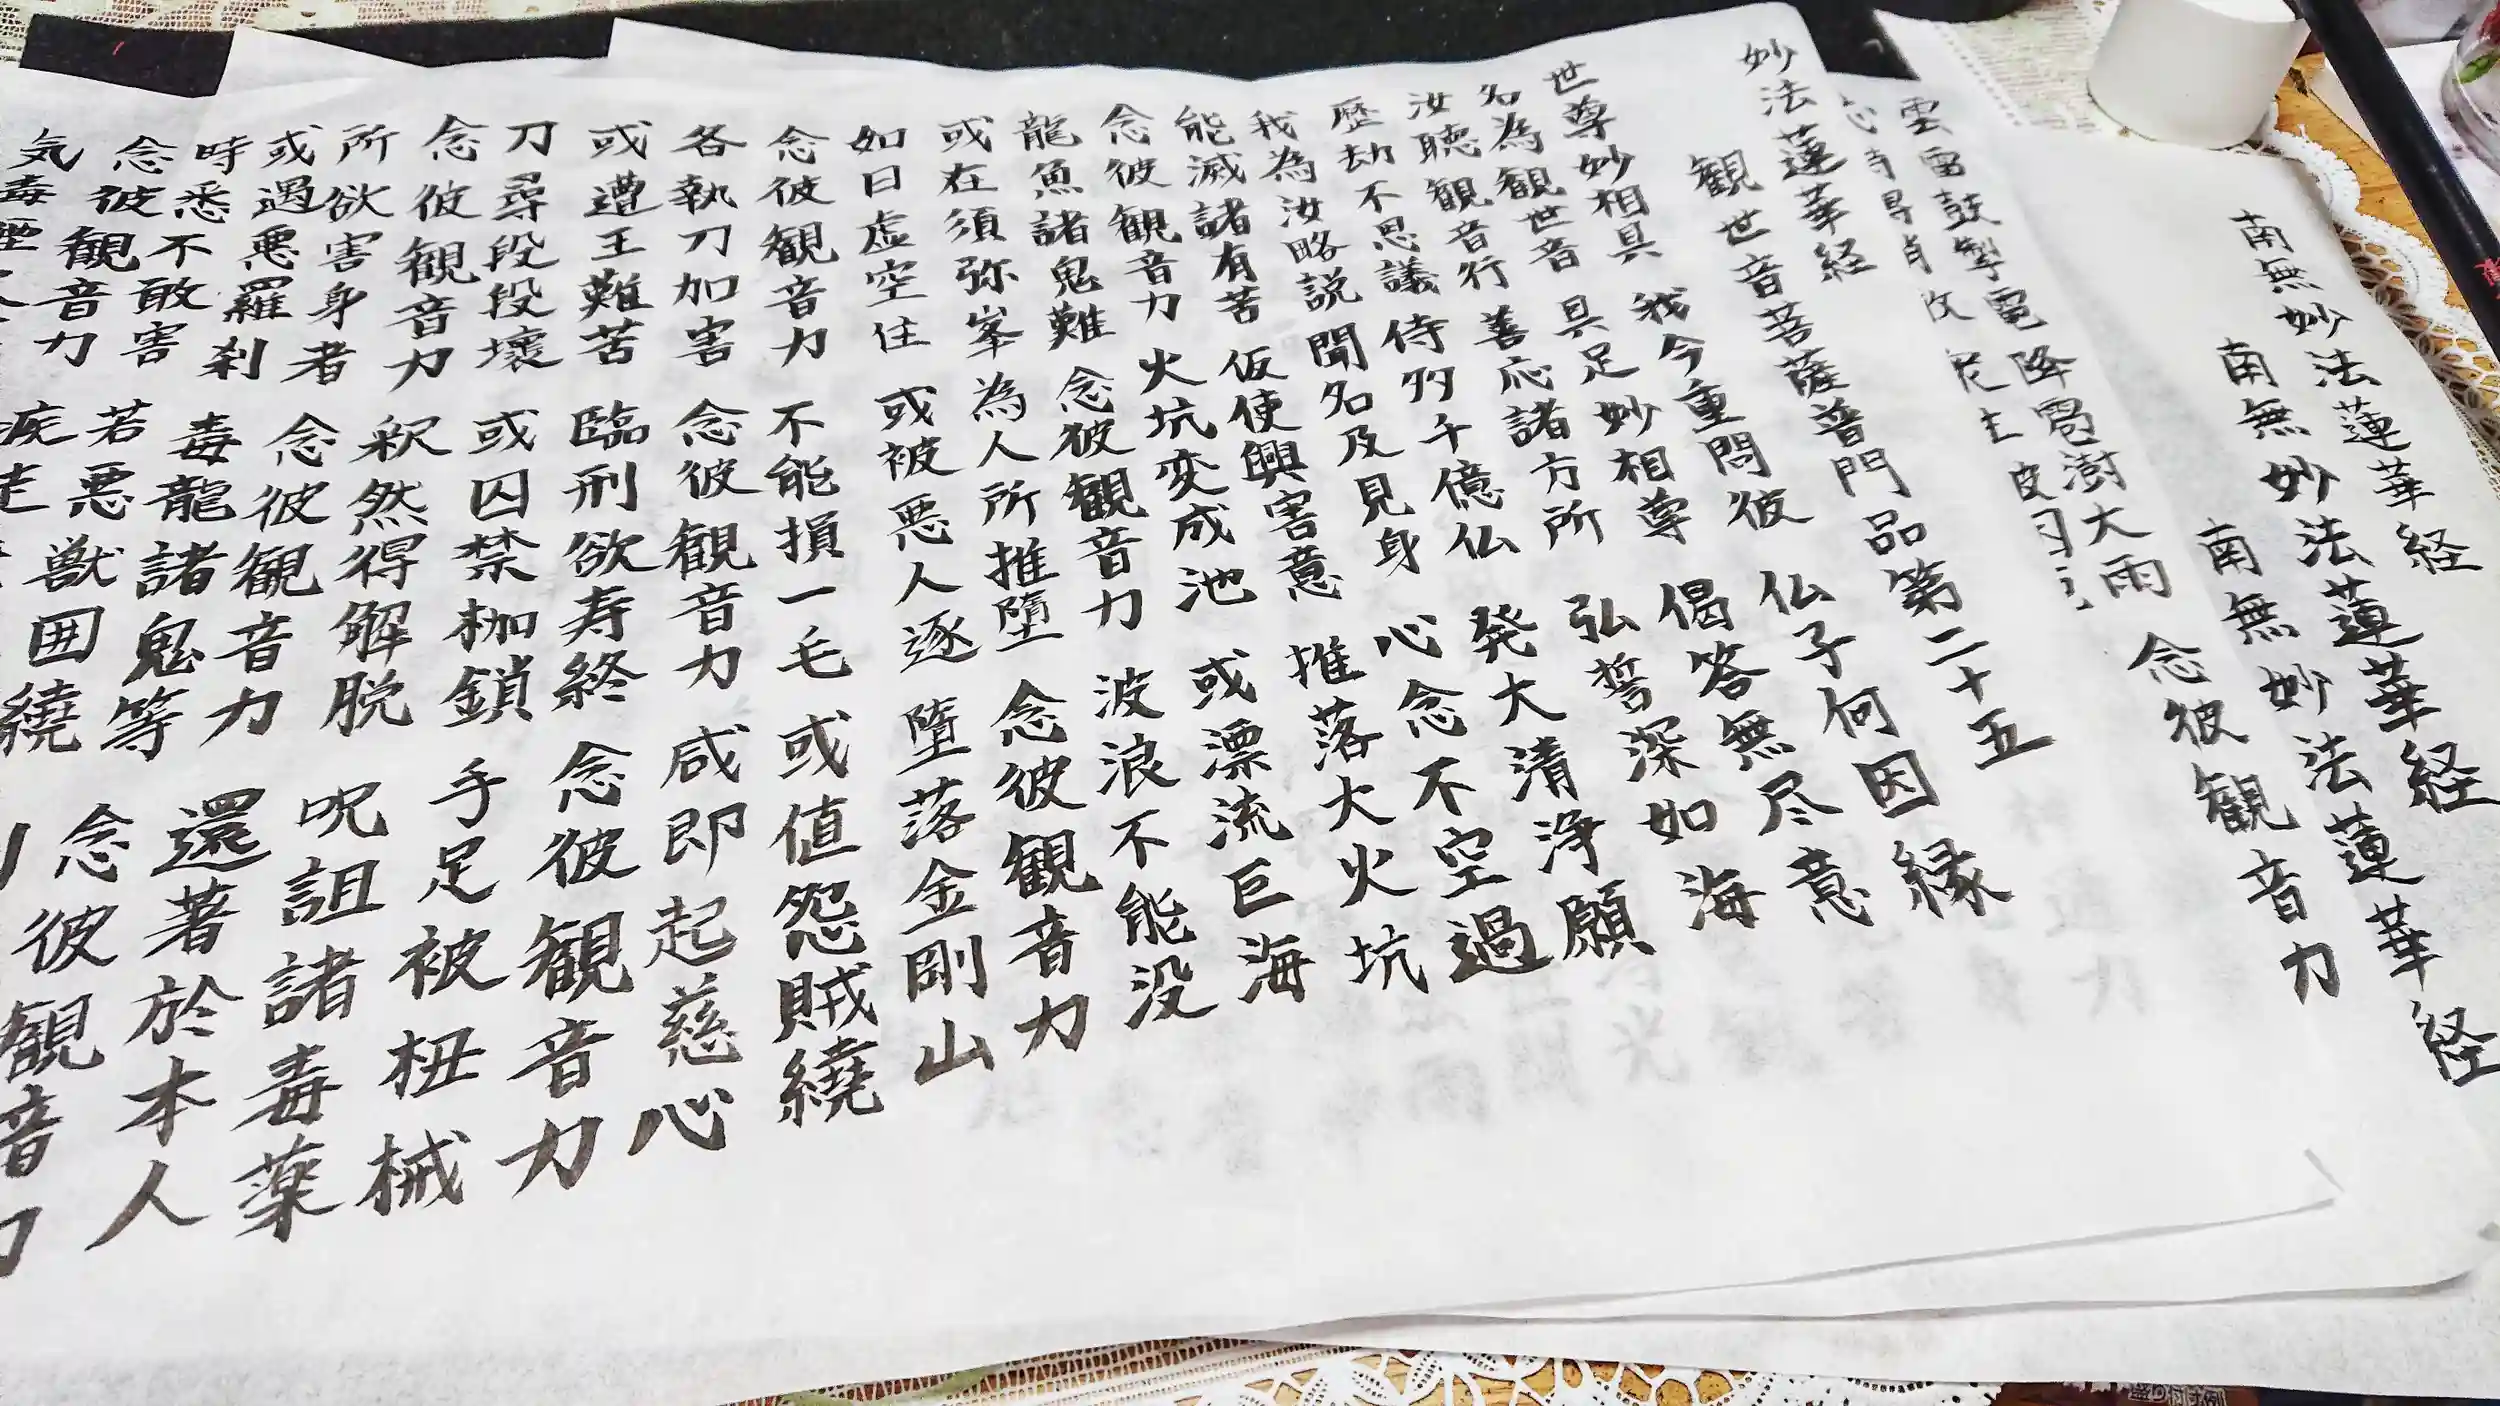 南無妙法蓮華経
南無妙法蓮華経
南無妙法蓮華経
雲雷鼓掣電 降雹澍大雨 念彼観音力
妙法蓮華経
観世音菩薩普門品第二十五
世尊妙相具 我今重問彼 仏子何因縁
名為観世音 具足妙相尊 偈答無尽意
汝聴観音行 善応諸方所 弘誓深如海
歴劫不思議 侍多千億仏 発大清浄願
我為汝略説 聞名及見身 心念不空過
能滅諸有苦 仮使興害意 推落大火坑
念彼観音力 火坑変成池 或漂流巨海
龍魚諸鬼難 念彼観音力 波浪不能没
或在須弥峯 為人所推墮 念彼観音力
如日虚空住 或被悪人逐 墮落金剛山
念彼観音力 不能損一毛 或値怨賊繞
各執刀加害 念彼観音力 咸即起慈心
或遭王難苦 臨刑欲寿終 念彼観音力
刀尋段段壞 或囚禁枷鎖 手足被杻械
念彼観音力 釈然得解脱 呪詛諸毒薬
所欲害身者 念彼観音力 還著於本人
或遇悪羅刹 毒龍諸鬼等 念彼観音力
時悉不敢害 若悪獣囲繞
念彼観音力 疾走
気毒煙